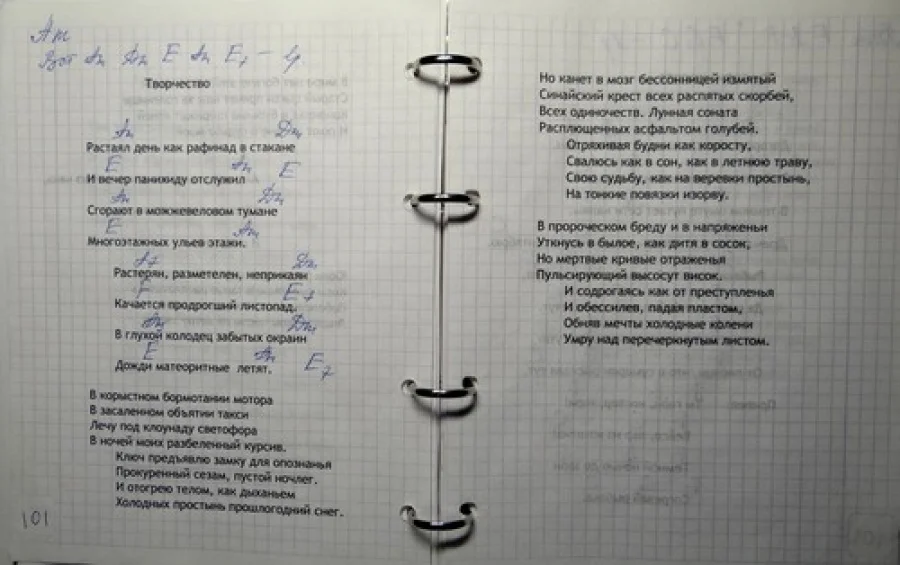 Am
Am Dm E Am E7 –
Творчество
Am Dm
Растаял день как рафинад в стакане
E Am E
И вечер панихиду отслужил
Am Dm
Сгорают в можжевеловом тумане
E Am
Многоэтажных ульев этажи.
A7 Dm
Растерян, разметелен, неприкаян
E7
Качается продрогший листопад,
Am Dm
В глухой колодец забытых окраин
E Am E7
Дожди матеоритные летят.
В корыстном бормотании мотора
В засаленном объятии такси
Лечу под клоунаду светофора
В ночей моих разбеленный курсив.
Ключ предъявлю замку для опознанья
Прокуренный сезам, пустой ночлег.
И отогрею телом, как дыханьем
Холодных простынь прошлогодний снег.
101
Но канет в мозг бессонницей измятый
Синайский крест всех распятых скорбей,
Всех одиночеств. Лунная соната
Расплющенных асфальтом голубей.
Отряхивая будни как коросту,
Свалюсь как в сон, как в летнюю траву,
Свою судьбу, как на веревки простынь,
На тонкие повязки изорву.
В пророческом бреду и в напряженьи
Уткнусь в былое, как дитя в сосок,
Но мертвые кривые отраженья
Пульсирующий высосут висок.
И содрогаясь как от преступленья
И обессилев, падая пластом,
Обняв мечты холодные колени
Умру над перечеркнутым листом.